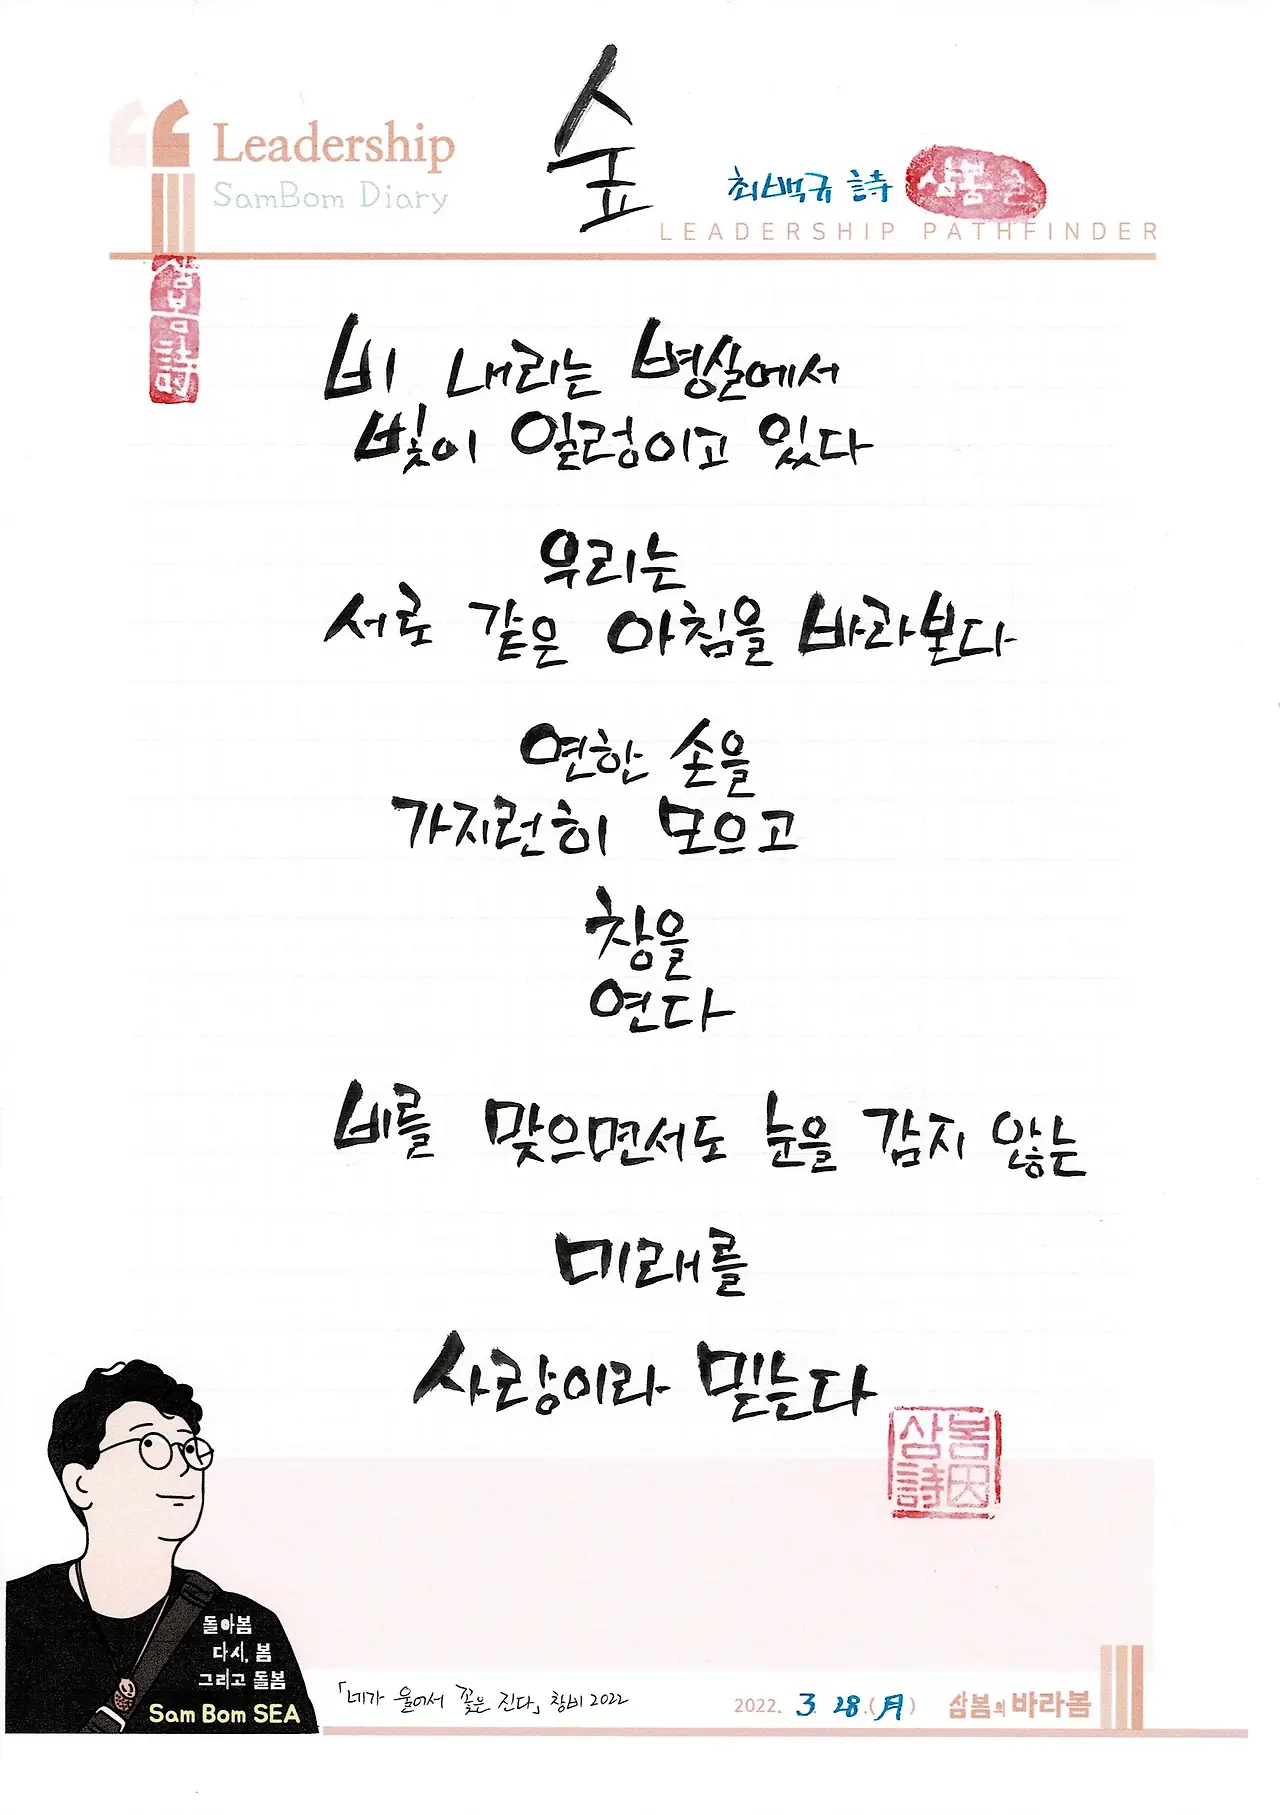 숲
Leadership
SamBom Diary
최백규 詩
삼봄
LEADERSHIP PATHFINDER
삼봄詩
비 내리는 병실에서
빛이 일렁이고 있다
우리는
서로 같은 아침을 바라본다
연한 손을
가지런히 모으고
창을
연다
비를 맞으면서도 눈을 감지 않는
미래를
사랑이라 믿는다
삼봄
詩
돌아봄
다시, 봄
그리고 돌봄
Sam Bom SEA
「네가 울어서 꽃은 진다」 창비 2022
2022. 3. 28.(月)
삼봄의 바라봄